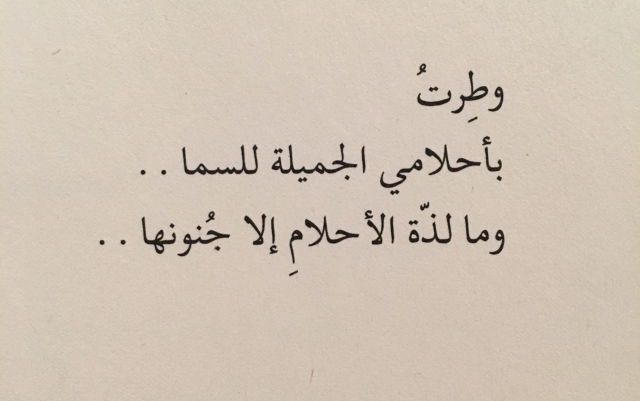 وطِرتُ
بأحلامي الجميلة للسما . .
وما لذّة الأحلامِ إلا جُنونها . .